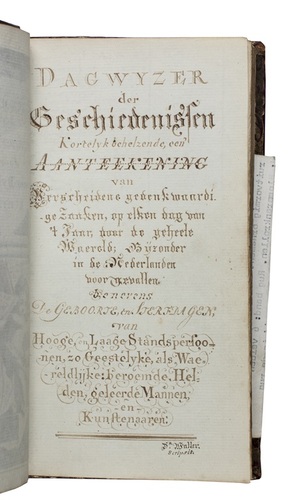 DAGWYZER
der
Geschiedenissen
Kortelyk behelzende, een
AANTEEKENING
van
Verscheidene gedenkwaardi
ge Zaaken, op elken dag van
't Jaar, door de geheele
Waereld; Byzonder
in de Nederlanden
voorgevallen.
Benevens
De GEBOORTE, en STERFDAGEN,
van
Hooge, en Laage Standspersoo-
nen, zo Geestelyke, als Wae-
reldlyke; beroemde, Hel-
den, geleerde Mannen,
en
Kunstenaaren.